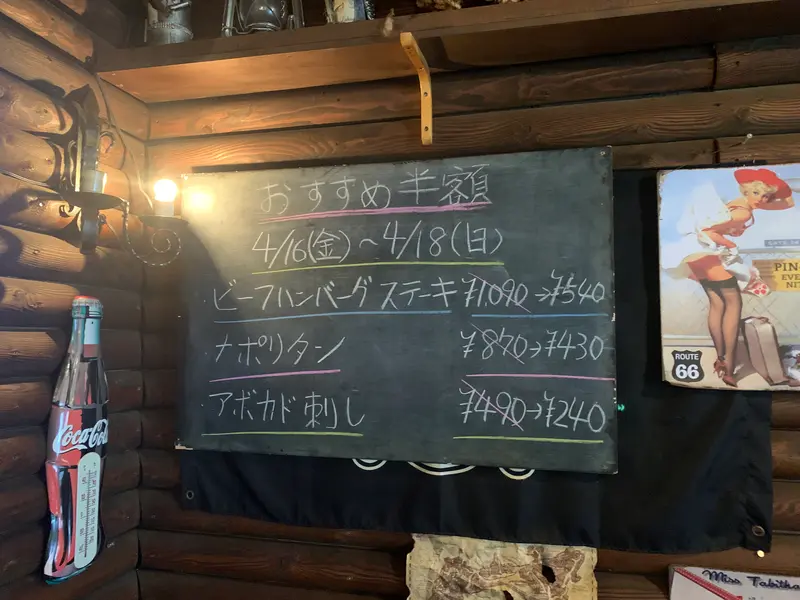 おすすめ半額
4/16(金)~4/18(日)
ビーフハンバーグステーキ ¥1,090→¥540
ナポリタン ¥870→¥430
アボカド刺し ¥490→¥240
Coca-Cola
PIN-
EVE
NIT
ROUTE
66
Miss Tabitha